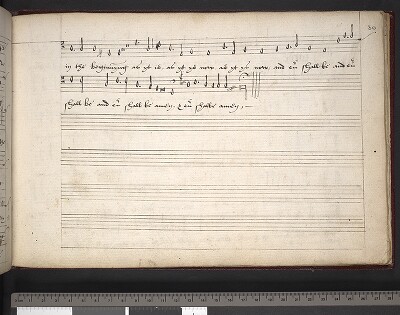 30
in the beginning as yt is, as yt ys now as yt ys now, and eũ shall be and eũ
shall be and eũ shall be amen, & eũ shalbe amen,